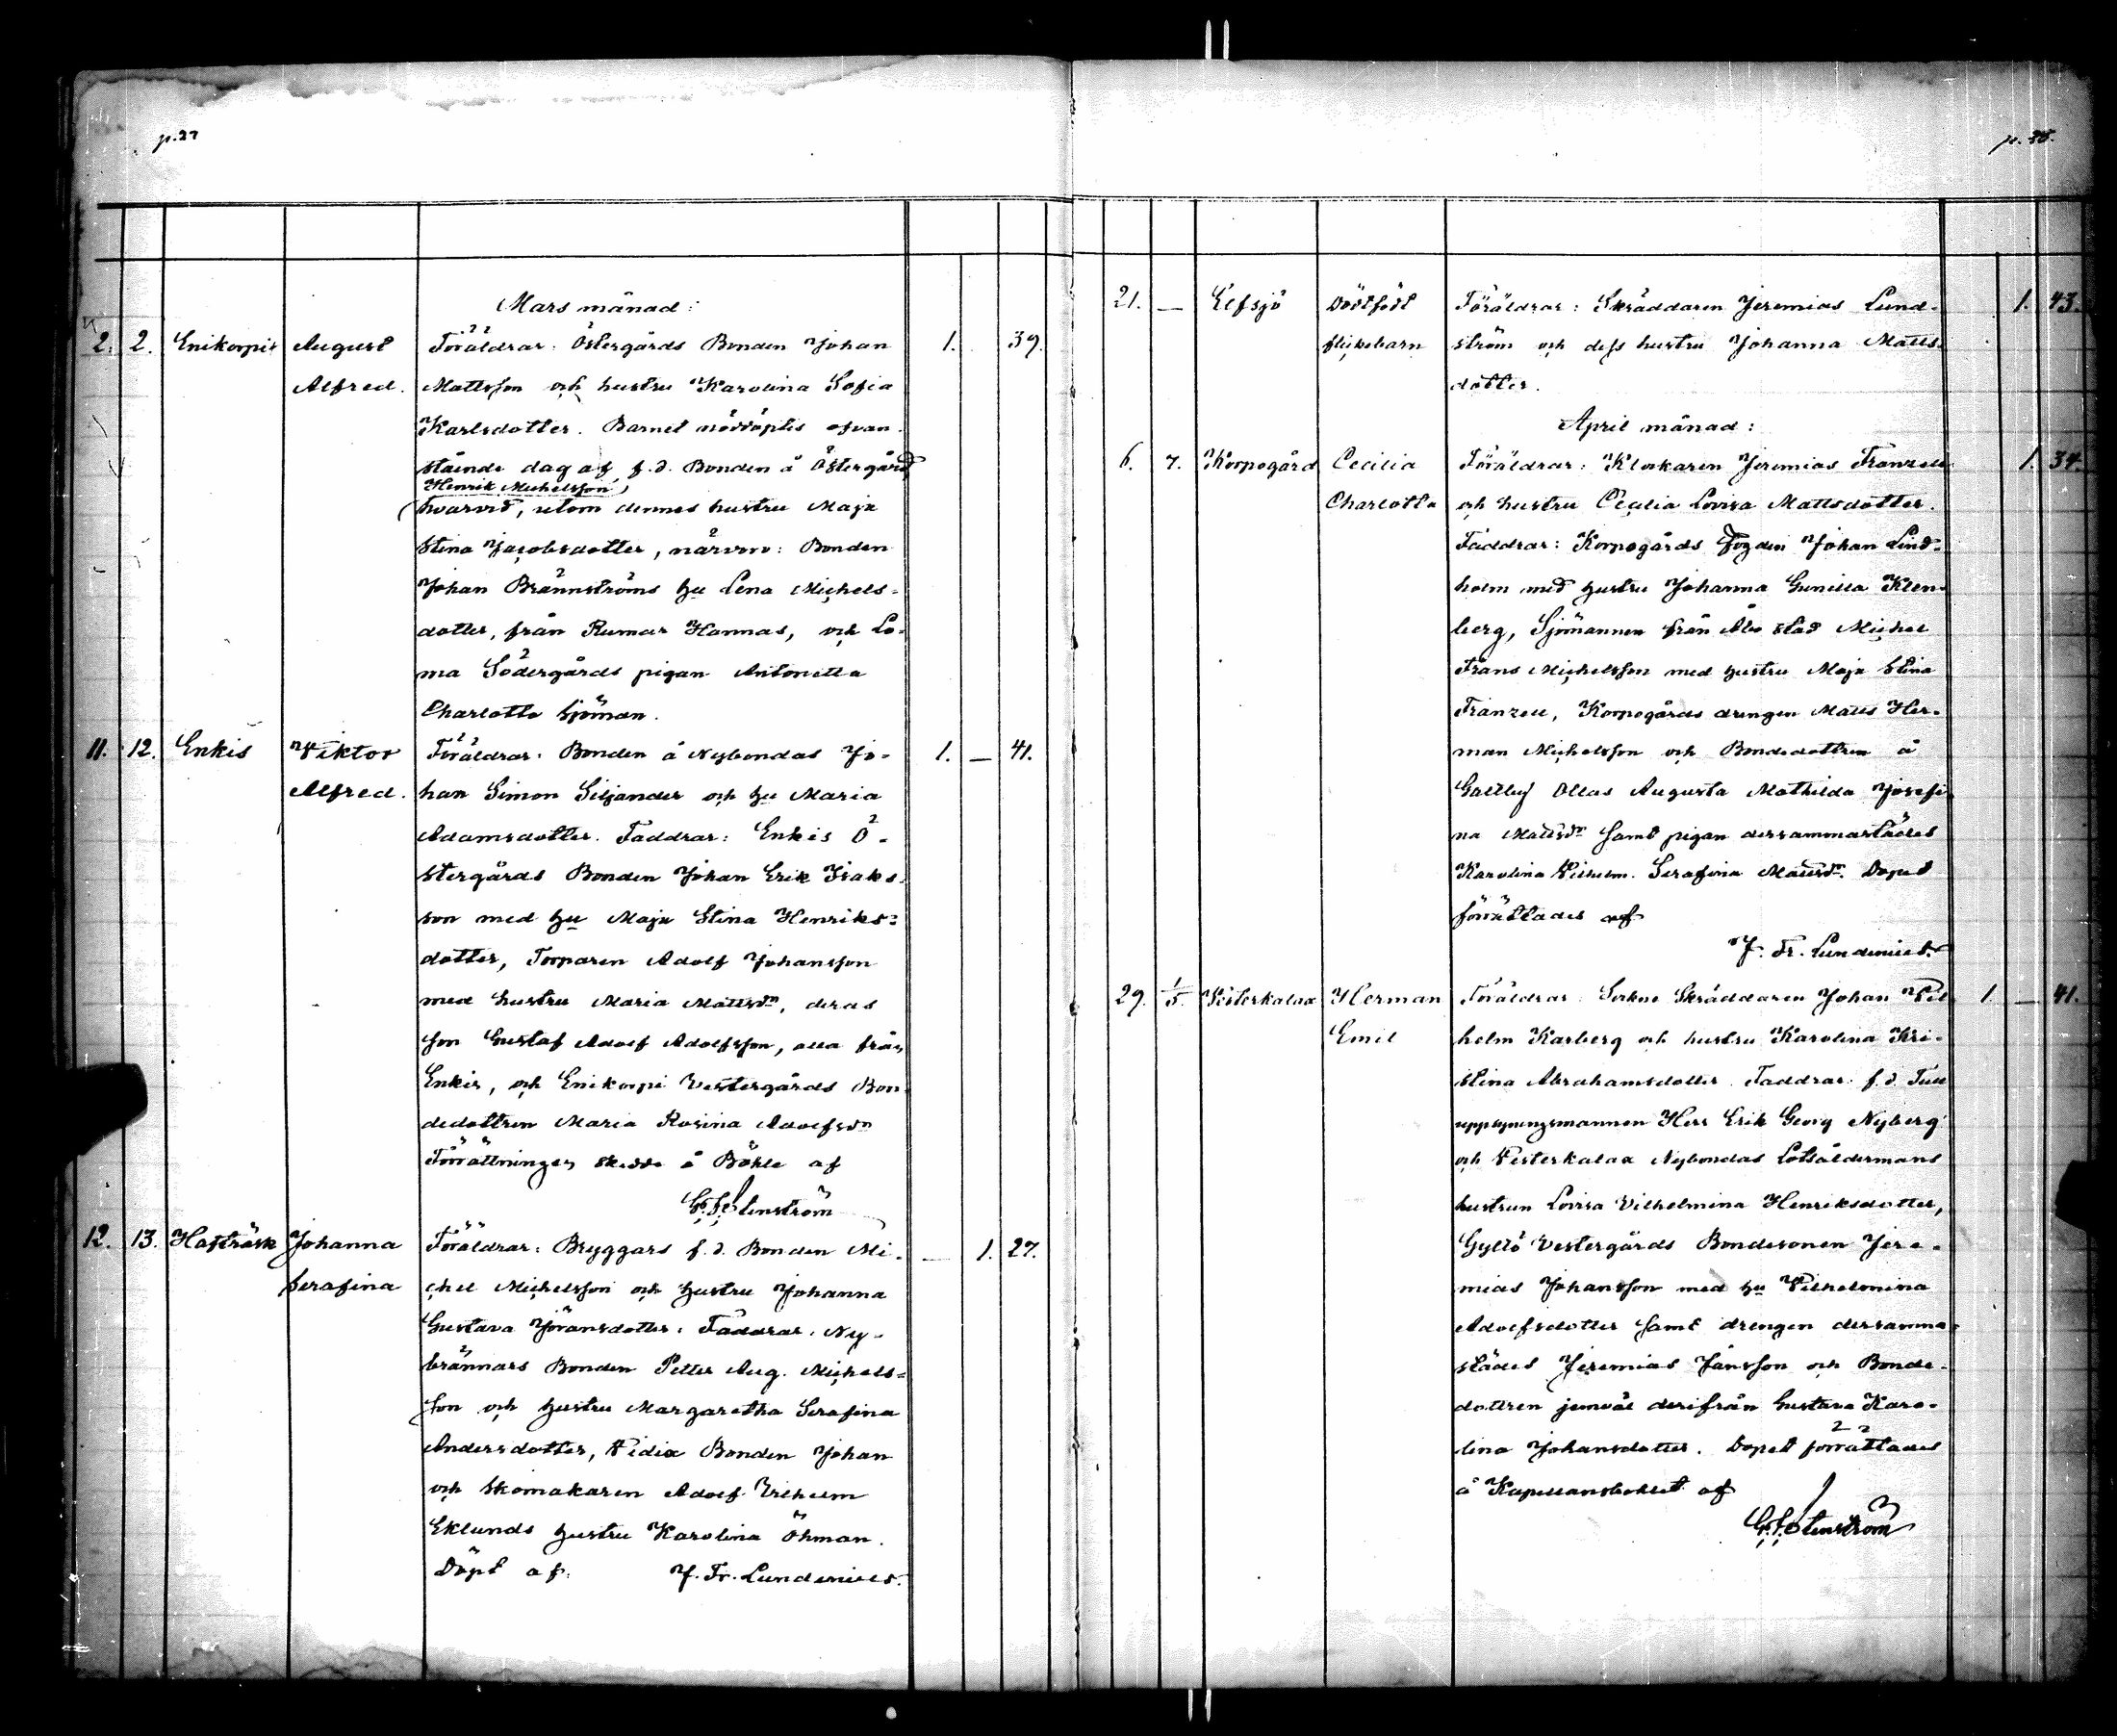 p.27
Mars månad:
2. 2. Enikorpi August Föräldrar: Östergårds Bonden Johan 1. 39.
Alfred. Mattsson och hustru Karolina Sofia
Karlsdotter. Barnet nöddöptes ofvan-
stående dag af f.d. Bonden å Östergård
Henrik Michelsson
hvarvid, utom dennes hustru Maja
Stina Jacobsdotter, närvoro: Bonden
Johan Brännströms hu Lena Michels-
dotter, från Rumar Hannas, och Lo-
ma Södergårds pigan Antonetta
Charlotta Sjöman.
11. 12. Enkis Viktor Föräldrar: Bonden å Nybondas Jo- 1. — 41.
Alfred. han Simon Siljander och hu Maria
Adamsdotter. Faddrar: Enkis Ö-
stergårds Bonden Johan Erik Isaks-
son med hu Maja Stina Henriks-
dotter, Torparen Adolf Johansson
med hustru Maria Mattsdr, deras
son Gustaf Adolf Adolfsson, alla från
Enkis, och Enikorpi Vestergårds Bon-
dedottren Maria Rosina Adolfsdr
Förrättningen skedde å Böhle af
G. F. Stenström
12. 13. Hafträsk Johanna Föräldrar: Bryggars f.d. Bonden Mi- — 1. 27.
Serafina chel Michelsson och hustru Johanna
Gustava Jöransdotter. Faddrar: Ny-
brännars Bonden Petter Aug. Michels-
son och hustru Margaretha Serafina
Andersdotter, Vidix Bonden Johan
och Skomakaren Adolf Vilhelm
Eklunds hustru Karolina Öhman.
Döpt af: J. Fr. Lundenius.
p. 28.
21. — Elfsjö Dödfödt Föräldrar: Skräddaren Jeremias Lund- 1. 43.
flickebarn ström och dess hustru Johanna Matts-
dotter.
April månad:
6. 7. Korpogård Cecilia Föräldrar: Klockaren Jeremias Franzell 1. 34.
Charlotta och hustru Cecilia Lovisa Mattsdotter.
Faddrar: Korpogårds Fogden Johan Lind-
holm med hustru Johanna Gunilla Klen-
berg, Sjömannen från Åbo stad Michel
Frans Michelsson med hustru Maja Stina
Franzell, Korpogårds drengen Matts Her-
man Michelsson och Bondedottren å
Galtby Ollas Augusta Mathilda Josefi-
na Mattsdr samt pigan dersammastädes
Karolina Vilhelm. Serafina Mattsdr. Dopet
förrättades af
J. Fr. Lundenius.
29. 1/5. Vesterkalax Herman Föräldrar: Sockne Skräddaren Johan Vil- 1. — 41.
Emil helm Karberg och hustru Karolina Kri-
stina Abrahamsdotter. Faddrar: f.d. Tull
uppsyningsmannen Herr Erik Georg Nyberg
och Vesterkalax Nybondas Lotsåldermans
hustrun Lovisa Vilhelmina Henriksdotter,
Gyltö Vestergårds Bondesonen Jere-
mias Johansson med hu Vilhelmina
Adolfsdotter samt drengen dersamma-
städes Jeremias Jansson och Bonde-
dottren jemväl derifrån Gustava Karo-
lina Johansdotter. Dopet förrättades
å Kapellansbohlet af
G. F. Stenström